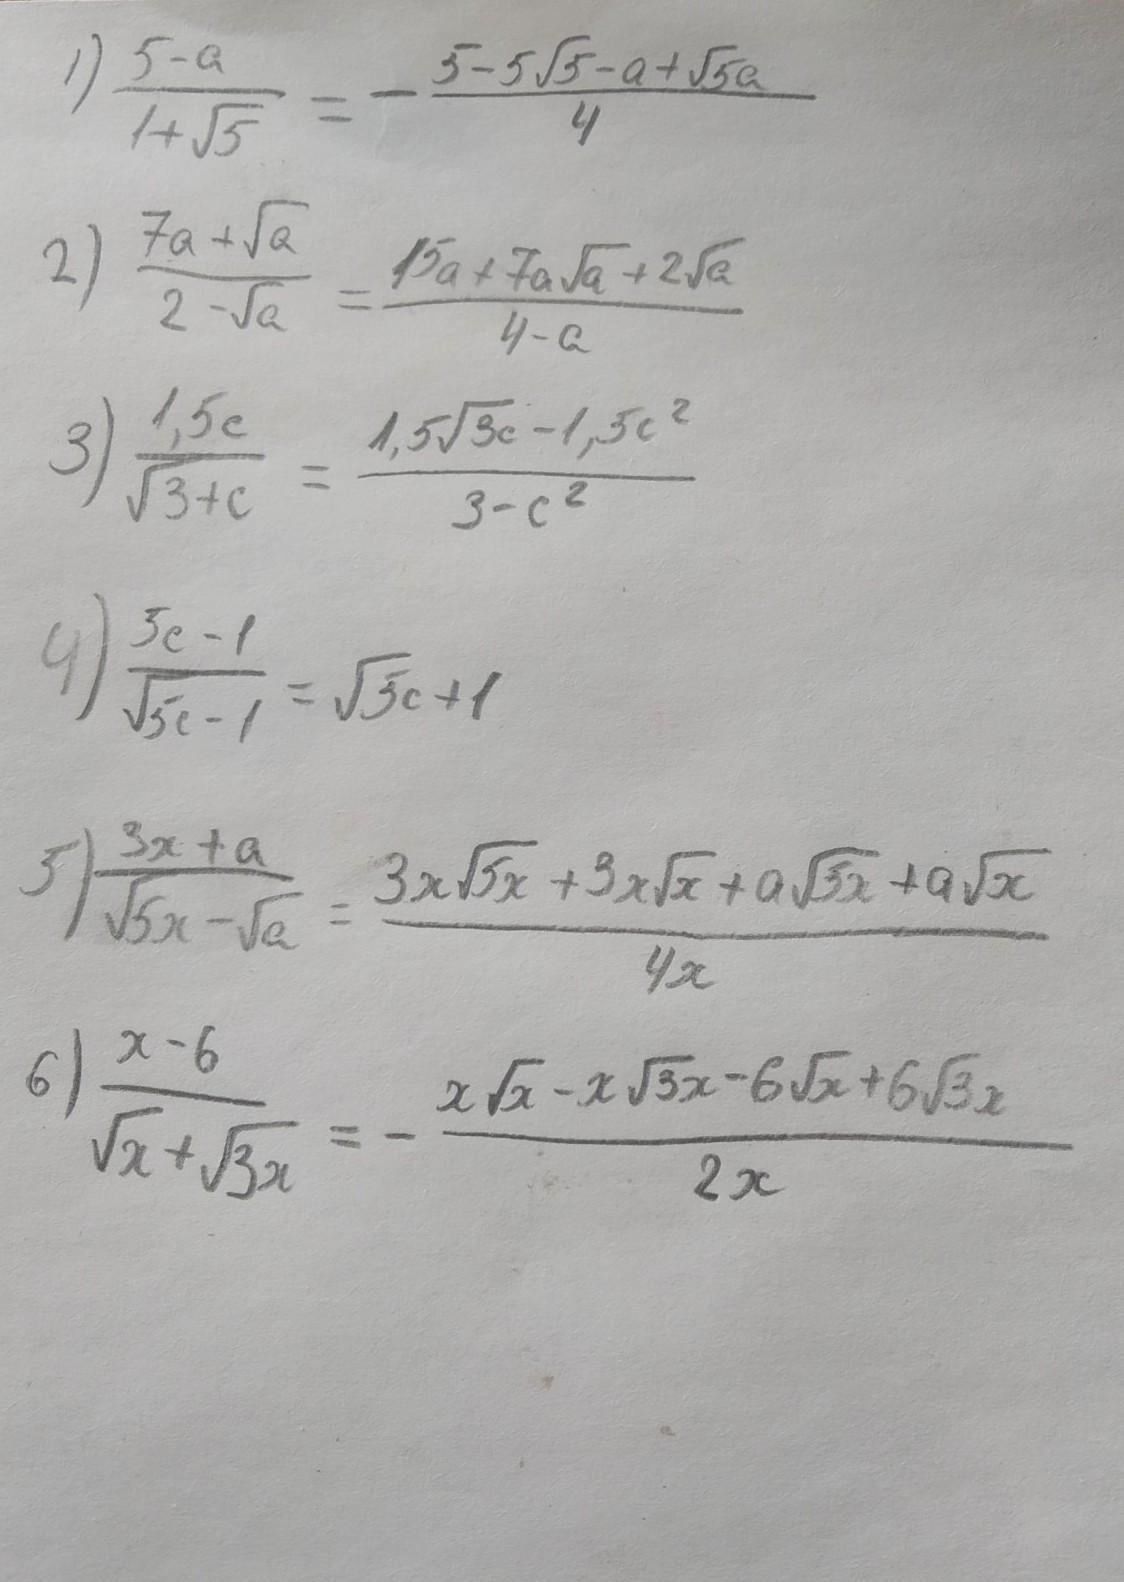 1) (5-a)/(1+√5) = - (5-5√5-a+√5a)/4
2) (7a+√a)/(2-√a) = (15a+7a√a+2√a)/(4-a)
3) 1,5c/(√3+c) = (1,5√3c-1,5c²)/(3-c²)
4) (5c-1)/(√5c-1) = √5c+1
5) (3x+a)/(√5x-√a) = (3x√5x+3x√x+a√5x+a√x)/4x
6) (x-6)/(√x+√3x) = - (x√x-x√3x-6√x+6√3x)/2x